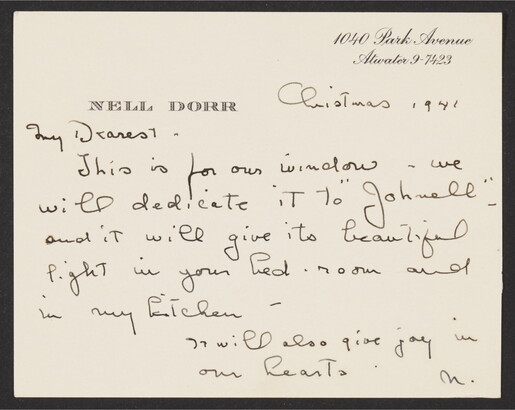 1040 Park Avenue
Atwater 9-7423
NELL DORR
Christmas 1941
My Dearest -
This is for our window - we
will dedicate it to "Johnell" -
and it will give its beautiful
light in your bed-room and
in my kitchen -
It will also give joy in
our hearts.
N.